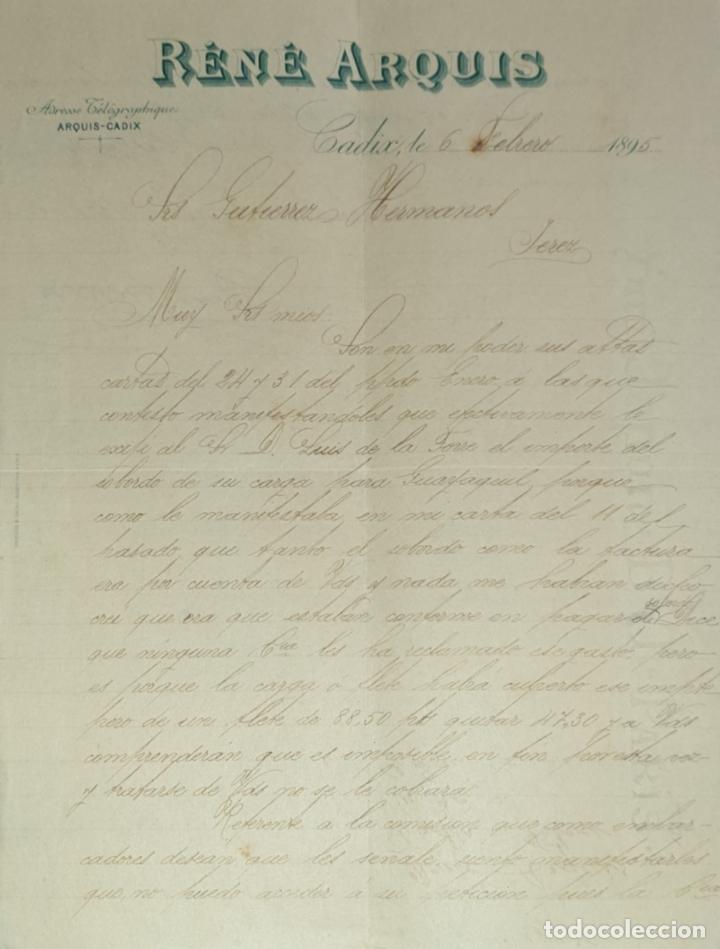 RÉNÉ ARQUIS
Adresse Télégraphique
ARQUIS-CADIX
Cadix, le 6 Febrero 1895
Srs Gutierrez Hermanos
Jerez
Muy Srs mios:
Son en mi poder sus attas
cartas del 24 y 31 del ppdo Enero, á las que
contesto manifestandoles que efectivamente le
exiji al Sr D. Luis de la Torre el importe del
sobordo de su carga para Guayaquil, porque
como le manifestaba en mi carta del 11 del
pasado, que tanto el sobordo como la factura
era por cuenta de Vds y nada me habian dicho
crei que era que estaban conforme en pagar
que ninguna Cia les ha reclamado ese gasto, pero
es porque la carga ó flete habrá cuberto ese
pero de un flete de 88,50 pts quitar 47,30 ya Vds
comprenderán que es imposible, en fin por esta vez
y tratarse de Vds no se le cobrará.
Referente a la comision que como embar-
cadores desean que les señale, siento manifestarles
que, no puedo acceder á su peticion pues la Cia
todocoleccion.net
todocoleccion